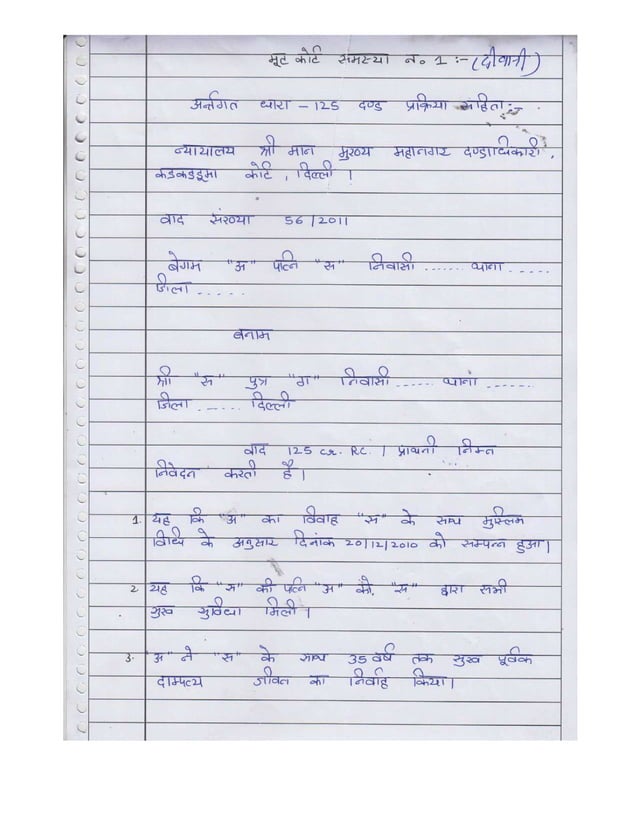 मूट कोर्ट समस्या न० 1 :- (दीवानी)
अर्न्तगत धारा - 125 दण्ड प्रक्रिया संहिता:-
न्यायालय श्री मान मुख्य महानगर दण्डाधिकारी,
कडकडडूमा कोर्ट, दिल्ली।
वाद संख्या 56/2011
बेगम "अ" पत्नि "स" निवासी ....... थाना .....
जिला .....
बनाम
श्री "स" पुत्र "ग" निवासी ...... थाना ......
जिला ...... दिल्ली
वाद 125 Cr. P.C. । प्रार्थनी निम्न
निवेदन करती है।
1. यह कि "अ" का विवाह "स" के साथ मुस्लिम
विधि के अनुसार दिनांक 20/12/2010 को सम्पन्न हुआ।
2 यह कि "स" की पत्नि "अ" को, "स" द्वारा सभी
सुख सुविधा मिली।
3. "अ" ने "स" के साथ 35 वर्ष तक सुख पूर्वक
दाम्पत्य जीवन का निर्वाह किया।